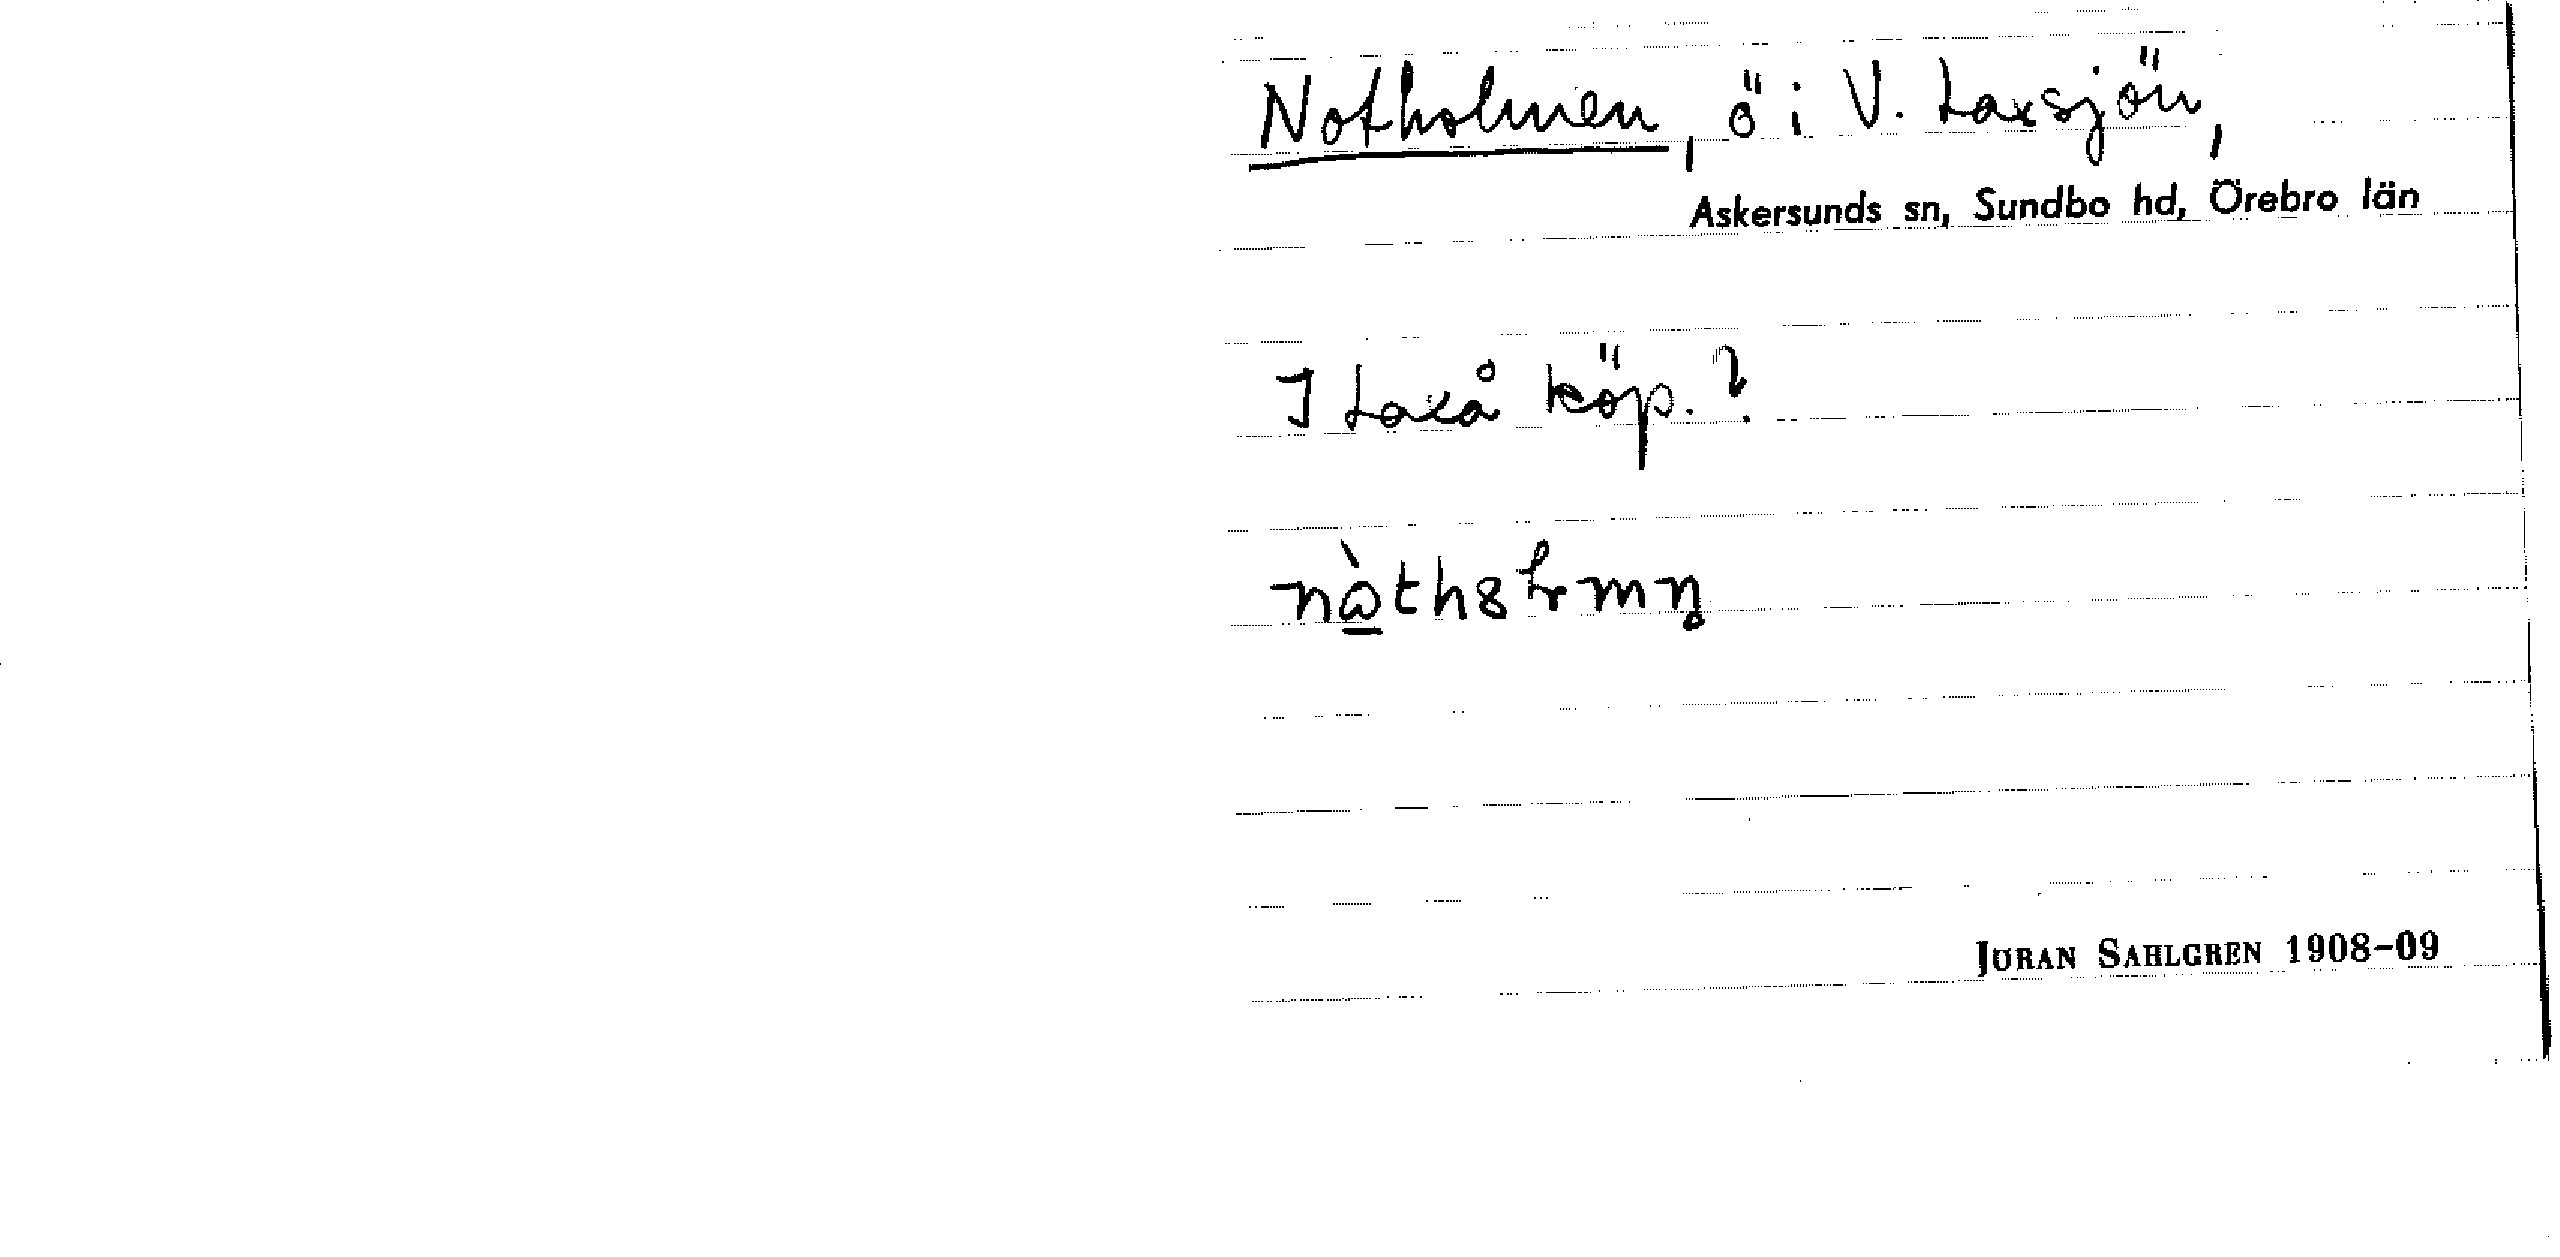 Notholmen, ö i V. Laxsjön,
Askersunds sn, Sundbo hd, Örebro län
I Laxå köp.?
JÖRAN SAHLGREN 1908-09